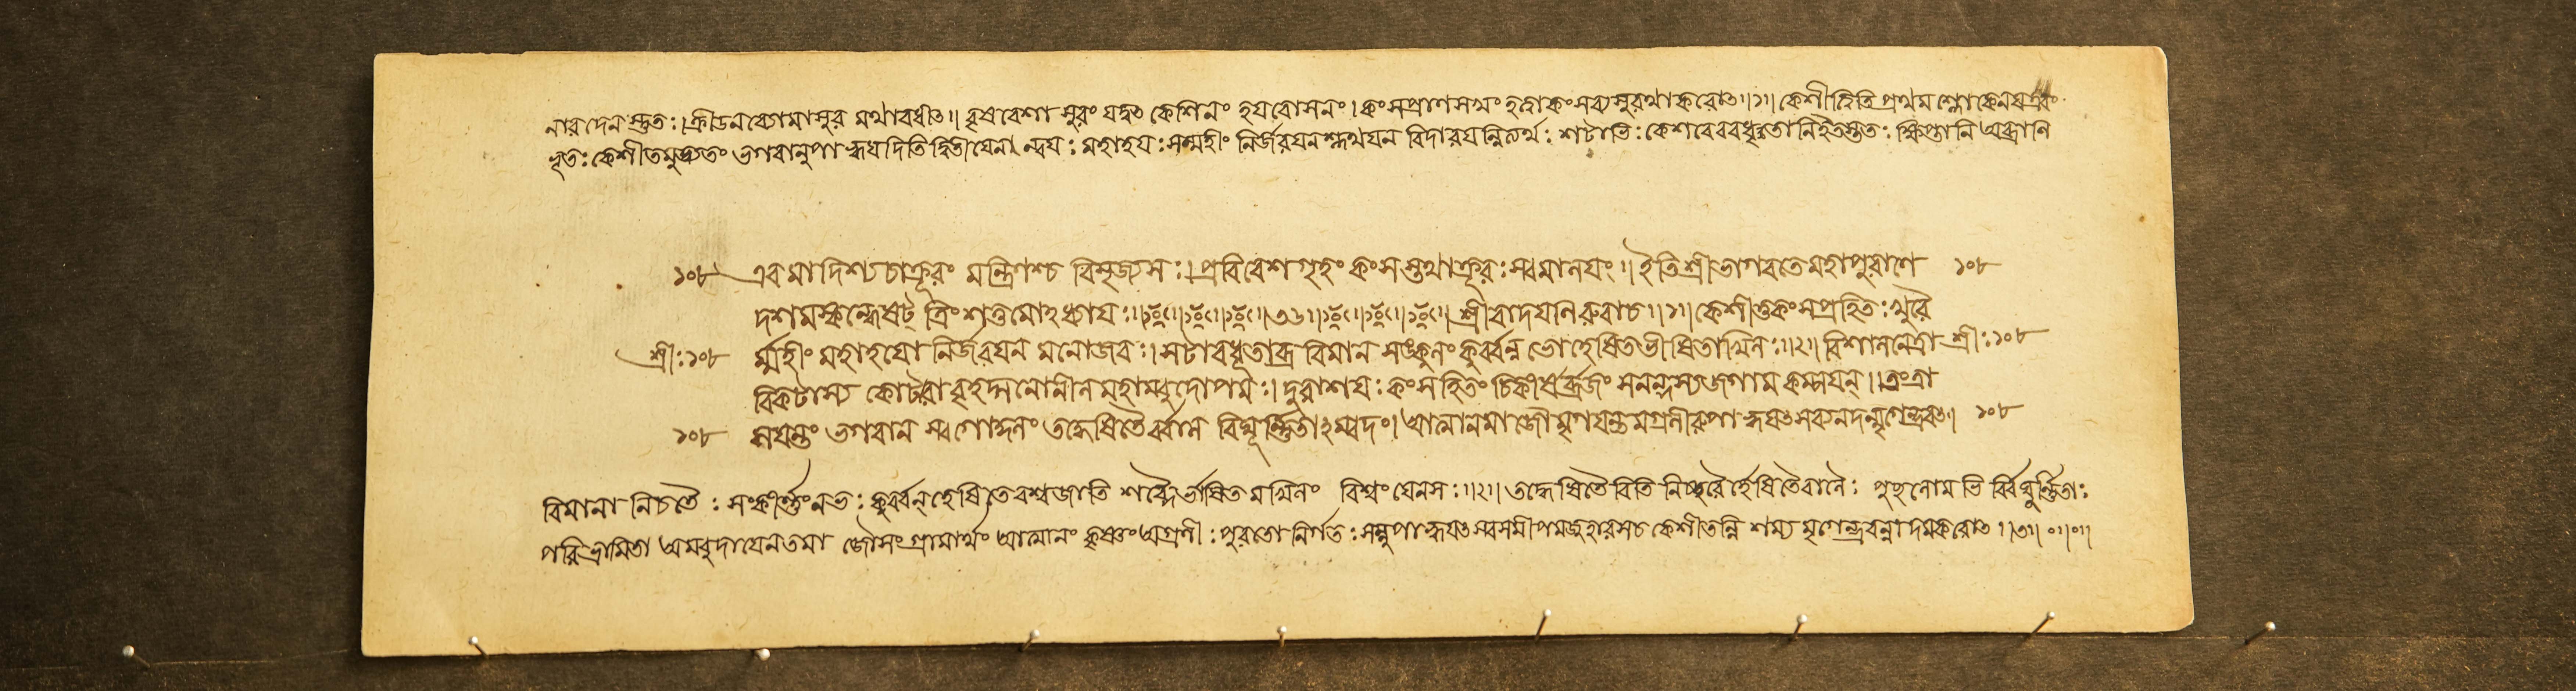 নারদেন স্তুতঃ।ক্রীডনব্যোমাসুর মথাবধীৎ॥ বৃষবেশা সুরং যদ্বৎ কেশিনং হযবোসনং। কংসপ্রাণসখং হত্বাকংসব্যসুরথাকরোৎ॥১॥ কেশীত্বিতি প্রথম শ্লোকেন
ধৃতঃ কেশীতমুদ্যতং ভগবানুপাহ্বযদিতি দ্বিতীযেনান্বযঃ মহাহযঃ সন্মহীং নির্জরযন শ্লথযন বিদারযন্নিত্যর্থঃ শটাভিঃ কেশবেরবধূতানি ইতস্তুতঃ ক্ষিপ্তানি অভ্রানি
১০৮ এবমাদিশ্যচাক্রূরং মন্ত্রিণশ্চ বিসৃজ্যসঃ।প্রবিবেশগৃহং কংসস্তথাক্রূরঃ স্বমালযং॥ইতিশ্রীভাগবতেমহাপুরাণে ১০৮
দশমস্কন্ধেষট্ ত্রিংশত্তমোঽধ্যাযঃ॥৩৬॥শ্রীবাদযাণরুবাচ॥১॥কেশীতুকংসপ্রহিতঃখুরৈ
শ্রীঃ ১০৮ র্ম্মহীং মহাহযো নির্জরযন মনোজবঃ।সটাবধূতাভ্র বিমান সঙ্কুলং কুর্ব্বন্নভোহেষিতভীষিতাখিলঃ॥২॥বিশালনেত্রো শ্রীঃ ১০৮
বিকটাস্য কোটরো বৃহদ্গলোনীলমহাম্বুদোপমঃ।দুরাশযঃ কংসহিতং চিকীর্ষুর্ব্রজং সনন্দস্যজগাম কম্পযন্॥তংত্রা
১০৮ সযন্তং ভগবান স্বগোকুলং তদ্ধেষিতৈর্ব্বাল বিঘূর্ণ্ণিতাঽম্বুদং।আত্মানমাজৌমৃগযন্তমগ্রণীরুপাহ্বযৎসব্যনদন্মৃগেন্দ্রবৎ॥ ১০৮
বিমানা নিচতৈঃ সংকীর্ণ্ণংনভঃ কুর্ব্বন্ হেষিতেনশ্বজাতি শব্দৈর্ভীষিত মখিলং বিশ্বং যেনসঃ॥২॥ তদ্ধেষিতৈরিতি নিষ্ঠুরৈর্হেষিতৈবালৈঃ পুছলোমভি র্বিঘূর্ণ্ণিতাঃ
পরিভ্রামিতা অম্বুদাযেনতমাজৌসংগ্রামার্থং আত্মানং কৃষ্ণং অগ্রণীঃ পুরতো নির্গতঃ সন্নুপাহ্বযৎ স্বসমীপমাজুহাবসচ কেশীতন্নিশম্য মৃগেন্দ্রবন্নাদমকরোৎ।৩॥